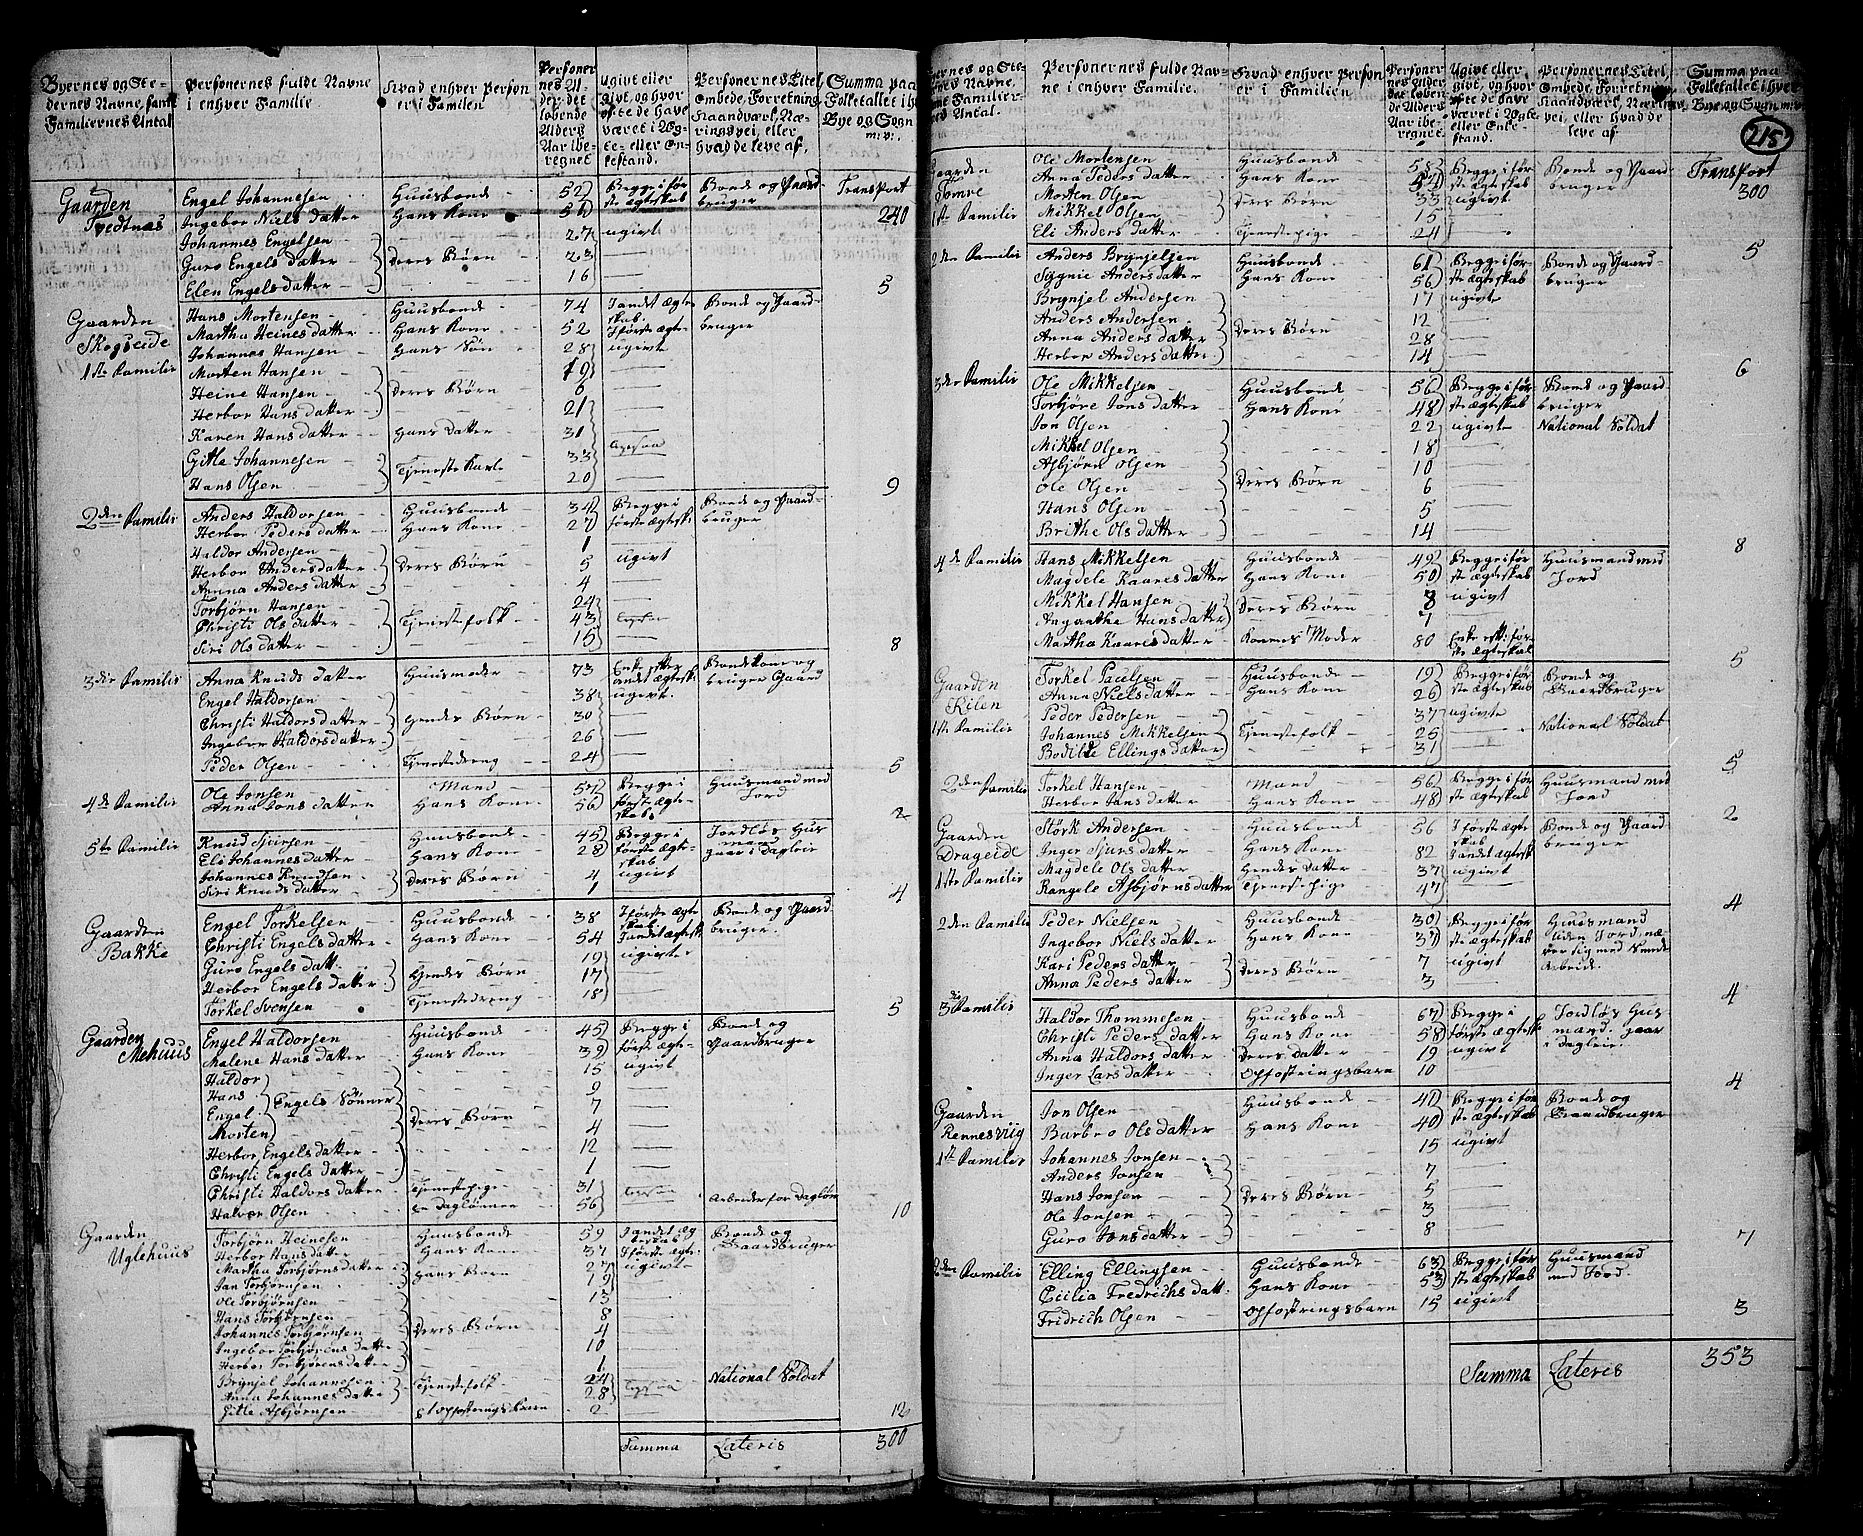 Byernes og Ste-
dernes Navne, samt
Familiernes Antal
Personernes fulde Navne
i enhver Familie
Hvad enhver Person
er i Familien
Personer-
nes Al-
der det
løbende
Alders
Aar ibe-
regnet
ugivt eller
givt, og hvor
ofte de have
været i Æg-
te- eller En-
kestand.
Personernes Titel,
Embede, Forretning,
Haandværk, Næ-
ringsvei, eller
hvad de leve af.
Summa paa
Folketallet i hver
Bye og Sogn
m: v:
Gaarden
Tvedtnæs
Engel Johannesen Huusbonde 52 Begge i før Bonde og Gaard Transport
Ingebor Niels datter Hans Kone 56 ste Ægteskab bruger 240
Johannes Engelsen 27 ugivt
Guro Engels datter Deres Børn 23
Elen Engelsdatter 16 5
Gaarden
Skogseide
1ste Familie
Hans Mortensen Huusbonde 74 I andet Ægte skab Bonde og Gaard-
Martha Heines datter Hans Kone 52 I første Ægte- bruger
Johannes Hansen Hans Søn 28 ugivt
Morten Hansen 19
Heine Hansen Deres Børn 6
Herbor Hans datter 21
Karen Hans datter Hans Datter 31
Gitle Johannesen 33 ligesaa
Hans Olsen Tjeneste Karle 20 9
2den Familie
Anders Haldorsen Huusbonde 34 Begge i Bonde og Gaard-
Herbor Peders datter Hans Kone 27 første Ægtesk: bruger
Haldor Andersen 1
Herbor Andersdatter Deres Børn 5 ugivt
Anna Anders datter 4
Torbjørn Hansen 24
Christi Ols datter Tjenestefolk 43 ligesaa
Siri Ols datter 15 8
3die Familie
Anna Knuds datter Huusmoder 73 Enke efter Bondekone og
andet Ægtesk: bruger Gaard
Engel Haldorsen 38 ugivt.
Christi Haldorsdatter Hendes Børn 30
Ingebor Haldorsdatter 26
Peder Olsen Tjenestedreng 24 5
4de Familie
Ole Jonsen Mand 57 Begge i Huusmand med
Anna Jons datter Hans Kone 56 første Ægte- Jord
skab. 2
5te Familie
Knud Sjursen Huusbonde 45 Begge i Jordløs Hus
Eli Johannes datter Hans Kone 28 første Ægte- mand
Johannes Knudsen Deres Børn 4 skab gaar i Dagleie
Siri Knuds datter 1 ugivt 4
Gaarden
Bakke
Engel Torkelsen Huusbonde 38 I første Ægte skab Bonde og Gaard
Christi Engels datter Hans Kone 54 I andet Ægtesk. bruger.
19 ugivte
Guro Engels datt. Hendes Børn 17
Herbor Engels datter
Torkel Svensen Tjenestedreng 18 5
Gaarden
Mehuus
Engel Haldorsen Huusbonde 45 Begge i Bonde og
Malene Hans datter Hans Kone 39 første Ægte- Gaardbruger
Haldor 15 ugivt
Hans Engels Sønner 9
Engel 7
Morten Deres Børn 4
Herbor Engels datter 12
Christi Engels datter 1
Christi Haldors datter Tjenestepige 31 ligesaa
Halvor Olsen en Daglønner 56 Arbeider for Dagløn 10
Gaarden
Uglehuus
Torbjørn Heinesen Huusbonde 59 I andet Æg teskab Bonde og
Herbor Hans datter Hans Kone 37 I første Ægte- Gaardbruger
Martha Torbjørns datter Hans Børn 27 ugivt
Jan Torbjørnsen 19
Ole Torbjørnsen 13
Hans Torbjørnsen 8
Johannes Torbjørnsen Deres Børn 4
Ingebor Torbjørns Datter 10
Herbor Torbjørensdatter 1
Brynjel Johannesen Tjenestefolk 24 National Soldat
Anna Johannes datter 28 ligesaa
Gitle Asbjørnsen et Opfostringsbarn 2 12
Summa Lateris 300
Byernes og Ste-
dernes Navne,
samt Familier-
nes Antal.
Personernes fulde Nav-
ne i enhver Familie.
Hvad enhver Person
er i Familien
Personer-
nes Alder
det løben-
de Alders
Aar ibe-
regnet
Ugivt eller
givt, og hvor
ofte de have
været i Ægte
eller Enke-
stand.
Personernes Titel,
Embede, Forretning,
Haandværk, Nærings
vei, eller hvad de
leve af
Summa paa
Folketallet i hver
Bye og Sogn m: v:
215
Gaarden
Tomre
1ste Familie
Ole Mortensen Huusbonde 58 Begge i før Bonde og Gaard Transport
Anna Peders datter Hans Kone 52 ste Ægteskab bruger 300
Morten Olsen Deres Børn 33 ugivt
Mikkel Olsen 15
Eli Anders datter Tjenestepige 24 5
2den Familie
Anders Brynjelsen Huusbonde 61 Begge i før- Bonde og Gaard-
Sygnie Anders datter Hans Kone 56 ste Ægteskab bruger
Brynjel Andersen 17 ugivte
Anders Andersen Deres Børn 12
Anna Anders datter 28
Herbor Anders datter 14 6
3die Familie
Ole Mikkelsen Huusbonde 56 Begge i før Bonde og Gaard
Torbjøre Jons datter Hans Kone 48 ste Ægteskab bruger
Jon Olsen 22 ugivte National Soldat
Mikkel Olsen 18
Asbjørn Olsen 10
Ole Olsen Deres Børn 6
Hans Olsen 5
Brithe Ols datter 14 8
4de Familie
Hans Mikkelsen Huusbonde 49 Begge i før Huusmand med
Magdele Kaares datter Hans Kone 50 ste Ægteskab Jord
Mikkel Hansen Deres Børn 8 ugivt
Angnethe Hans datter 7
Martha Kaares datter Konens Moder 80 Enke eft: før
ste Ægteskab 5
Gaarden
Kilen
1ste Familie
Torkel Paulsen Huusbonde 19 Begge i før Bonde og
Anna Niels datter Hans Kone 26 ste Ægteskab Gaardbruger
Peder Pedersen 37 ugivte
Johannes Mikkelsen Tjenestefolk 25 National Soldat
Bodilde Ellings datter 31 5
2den Familie
Torkel Hansen Mand 56 Begge i før Huusmand med
Herbor Jans datter Hans Kone 48 ste Ægteskab Jord 2
Gaarden
Drageide
1ste Familie
Størk Andersen Huusbonde 56 I første Ægte skab Bonde og Gaard
Inger Sjurs datter Hans Kone 82 I andet Ægtesk: bruger
Magdele Ols datter Hendes Datter 37 ugivt
Rangele Asbjørns datter Tjenestepige 47 4
2den Familie
Peder Nielsen Huusbonde 30 Begge i før Huusmand
Ingebor Niels datter Hans Kone 37 ste Ægteskab uden Jord, næ-
Kari Peders datter Deres Børn 7 ugivt rer sig med Smede
Anna Peders datter 3 Arbeide. 4
3die Familie
Haldor Thommesen Huusbonde 67 Begge i Jordløs Hus
Christi Peders datter Hans Kone 58 første Ægtesk mand. gaar
Anna Haldors datter Deres datter 19 ugivt i Dagleie.
Inger Lars datter Opfostringsbarn 10 4
Gaarden
Rennesviig
1ste Familie
Jon Olsen Huusbonde 41 Begge i før Bonde og
Barbro Ols datter Hans Kone 40 ste Ægteskab Gaardbruger
Johannes Jonsen 15 ugivt
Anders Jonsen 7
Hans Jonsen Deres Børn 5
Ole Jonsen 3
Guro Jonsdatter 8 7
2den Familie
Elling Ellingsen Huusbonde 63 Begge i før Huusmand
Cicilia Fredrichs datt. Hans Kone 53 ste Ægteskab med Jord.
Fridrich Olsen Opfostringsbarn 15 ugivt 3
Summa Lateris 353